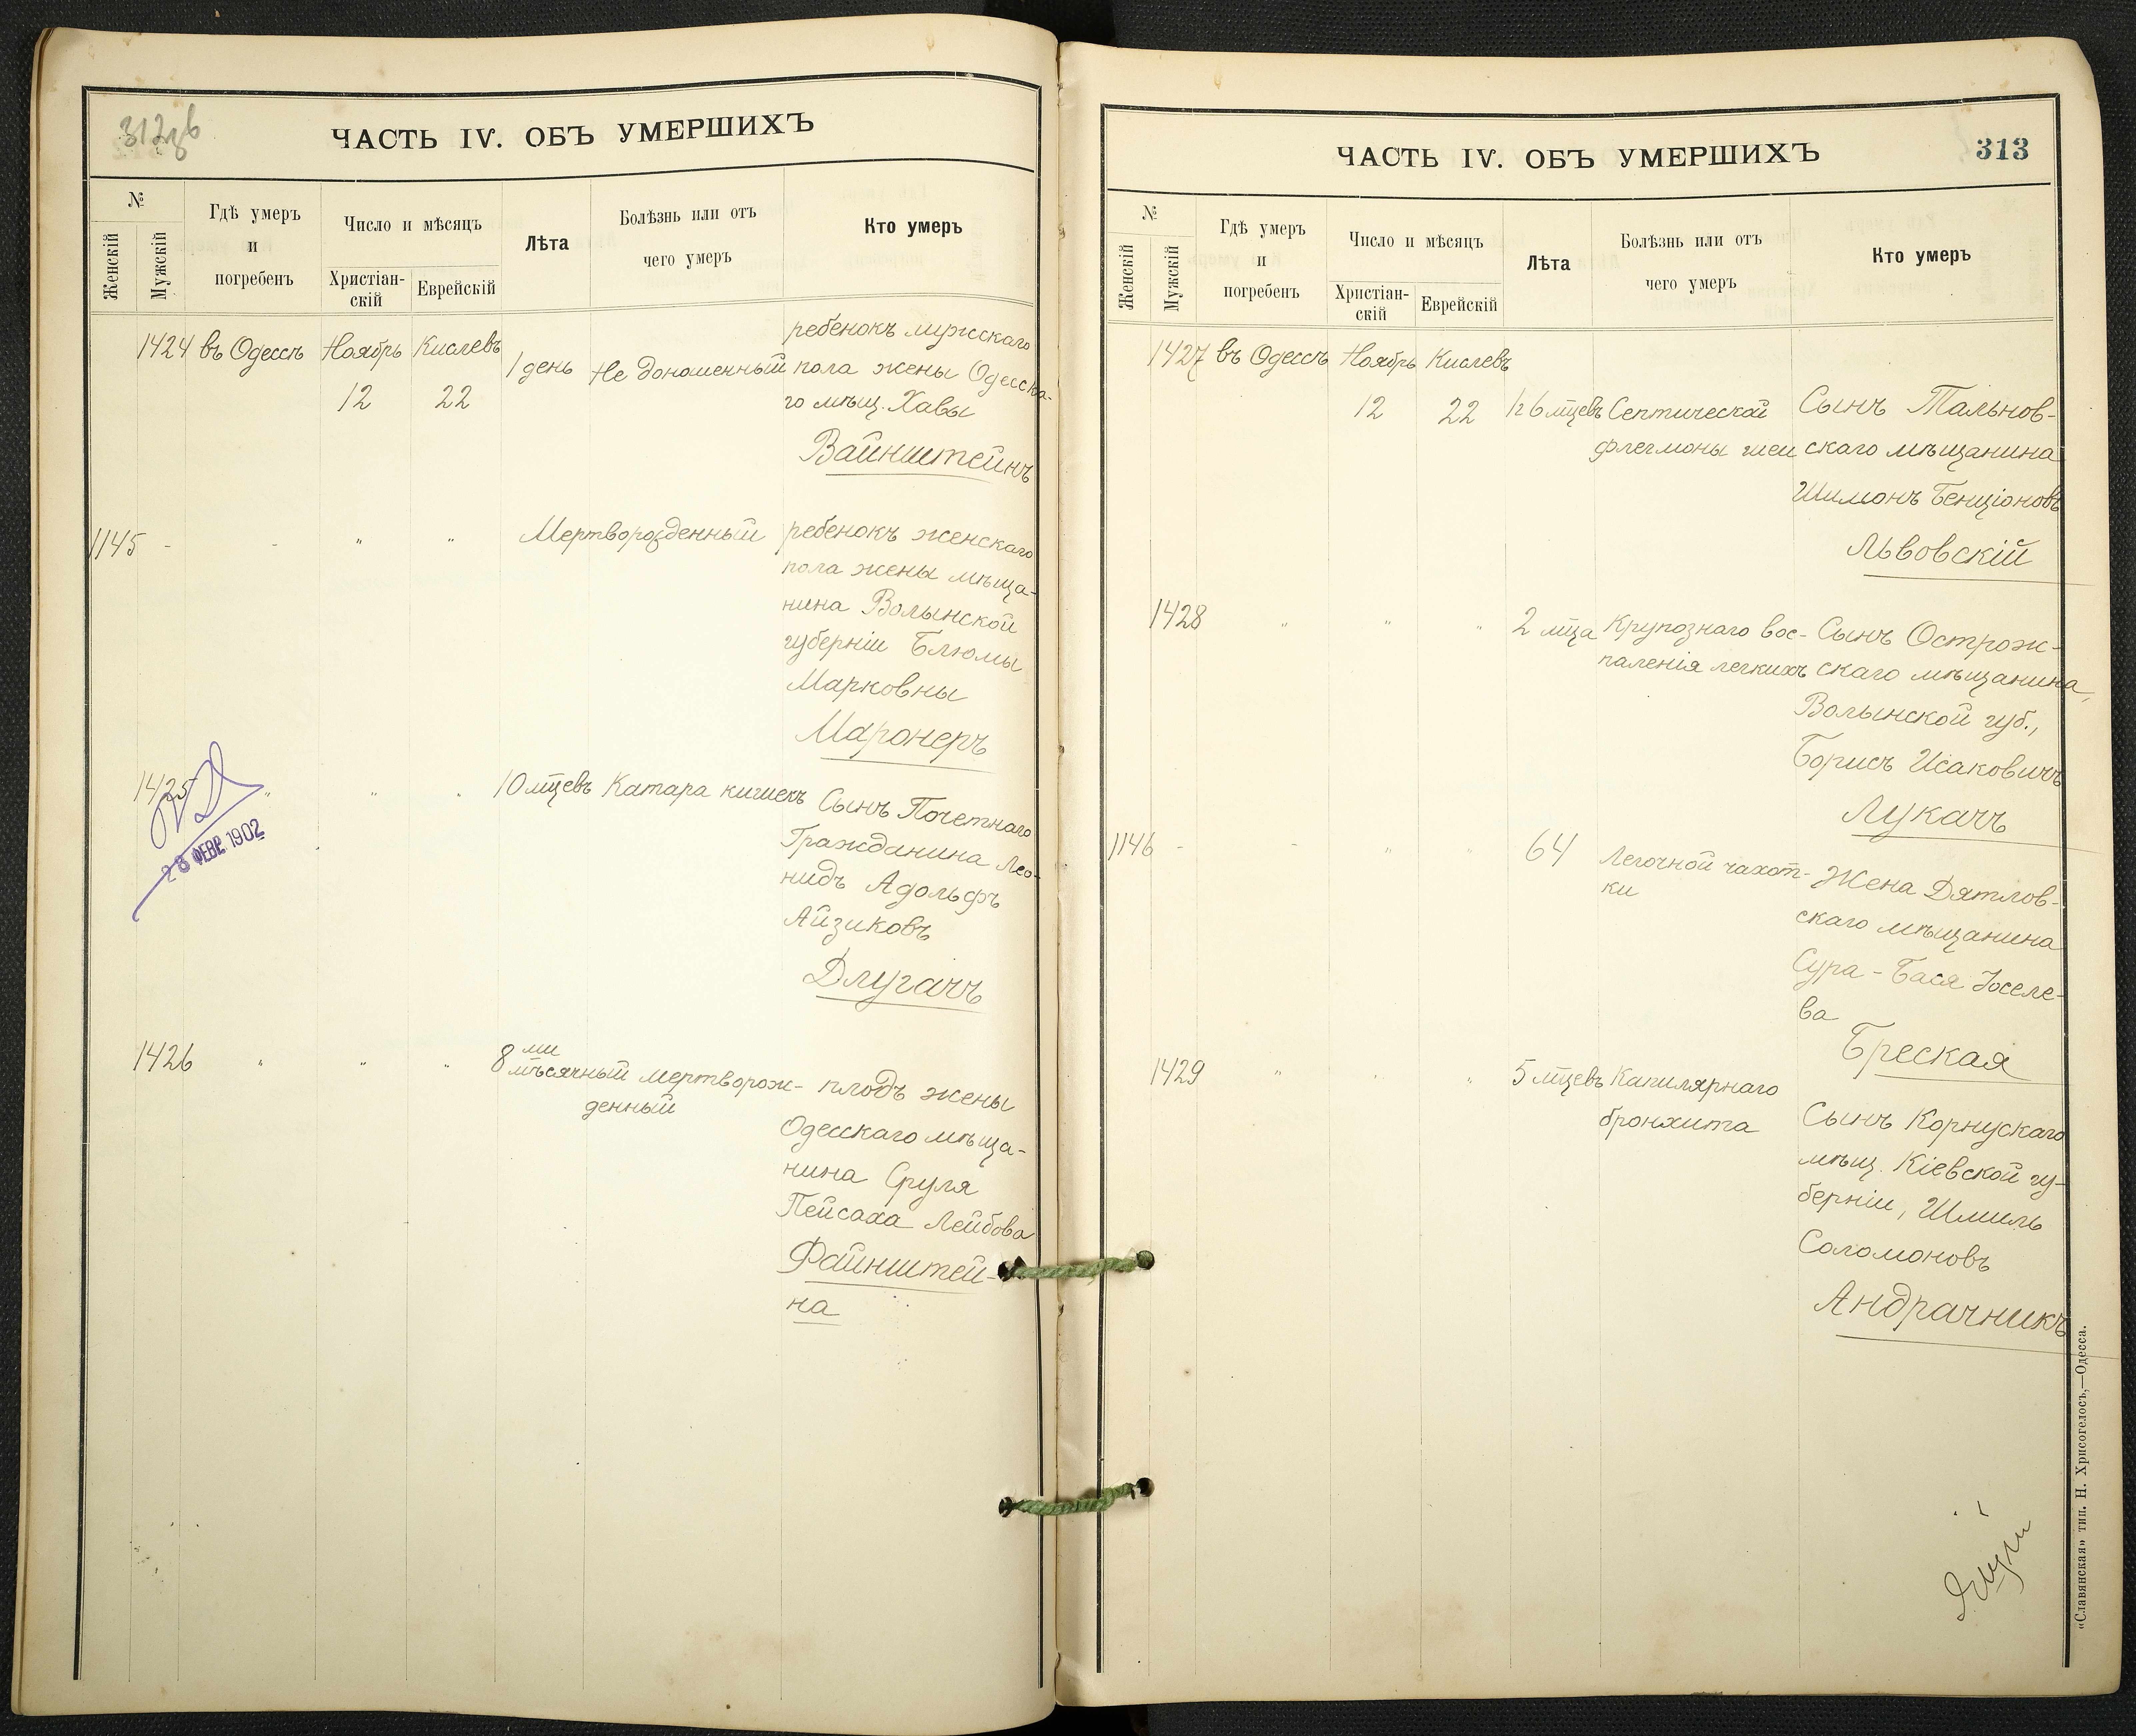 312об
ЧАСТЬ IV. ОБЪ УМЕРШИХЪ
№
Женскій
Мужскій
Гдѣ умеръ
и
погребенъ
Число и мѣсяцъ
Христіан-
скій
Еврейскій
Лѣта
Болѣзнь или отъ
чего умеръ
Кто умеръ
1424 въ Одессѣ Ноябрь Кислевъ
12 22
1 день Не доношенный
ребенокъ мужскаго
пола жены Одесска-
го мѣщ. Хавы
Вайнштейнъ
1145 - - " " Мертворожденный
ребенокъ женскаго
пола жены мѣща-
нина Волынской
губерніи Блюмы
Марковны
Маронеръ
1425 " " " 10 мцевъ Катара кишекъ
Сынъ Почетнаго
Гражданина Лео-
нидъ Адольфъ
Айзиковъ
Длугачъ
28 ФЕВР. 1902
1426 " " " 8ми мѣсячный мертворож-
денный
плодъ жены
Одесскаго мѣща-
нина Сруля
Пейсаха Лейбова
Файнштей-
на
ЧАСТЬ IV. ОБЪ УМЕРШИХЪ
313
№
Женскій
Мужскій
Гдѣ умеръ
и
погребенъ
Число и мѣсяцъ
Христіан-
скій
Еврейскій
Лѣта
Болѣзнь или отъ
чего умеръ
Кто умеръ
1427 въ Одессѣ Ноябрь Кислевъ
12 22 1г. 6 мцевъ Септической
флегмоны шеи
Сынъ Тальнов-
скаго мѣщанина
Шимонъ Бенціоновъ
Львовскій
1428 " " " 2 мца Крупознаго вос-
паленія легкихъ
Сынъ Острож-
скаго мѣщанина,
Волынской губ.,
Борисъ Исаковичъ
Лукачъ
1146 - - " " 64 Легочной чахот-
ки
Жена Дятлов-
скаго мѣщанина
Сура-Бася Іоселе-
ва
Бреская
1429 " " " 5 мцевъ Капилярнаго
бронхита
Сынъ Корнускаго
мѣщ. Кіевской гу-
берніи, Шмиль
Соломоновъ
Андрачникъ
«Славянская» тип. Н. Хрисогелосъ,—Одесса.